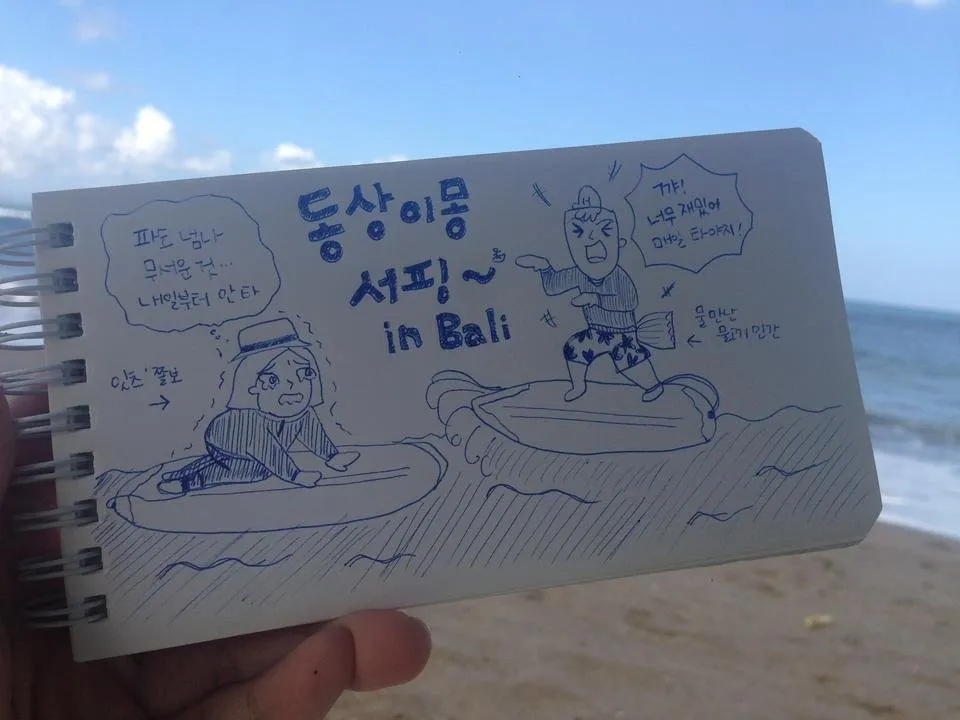 동상이몽
서핑~
in Bali
파도 넘나
무서운 것...
내일부터 안 타
잇츠 쫄보
꺄!
너무 재밌어
매일 타야지!
물 만난
물고기 인간
H